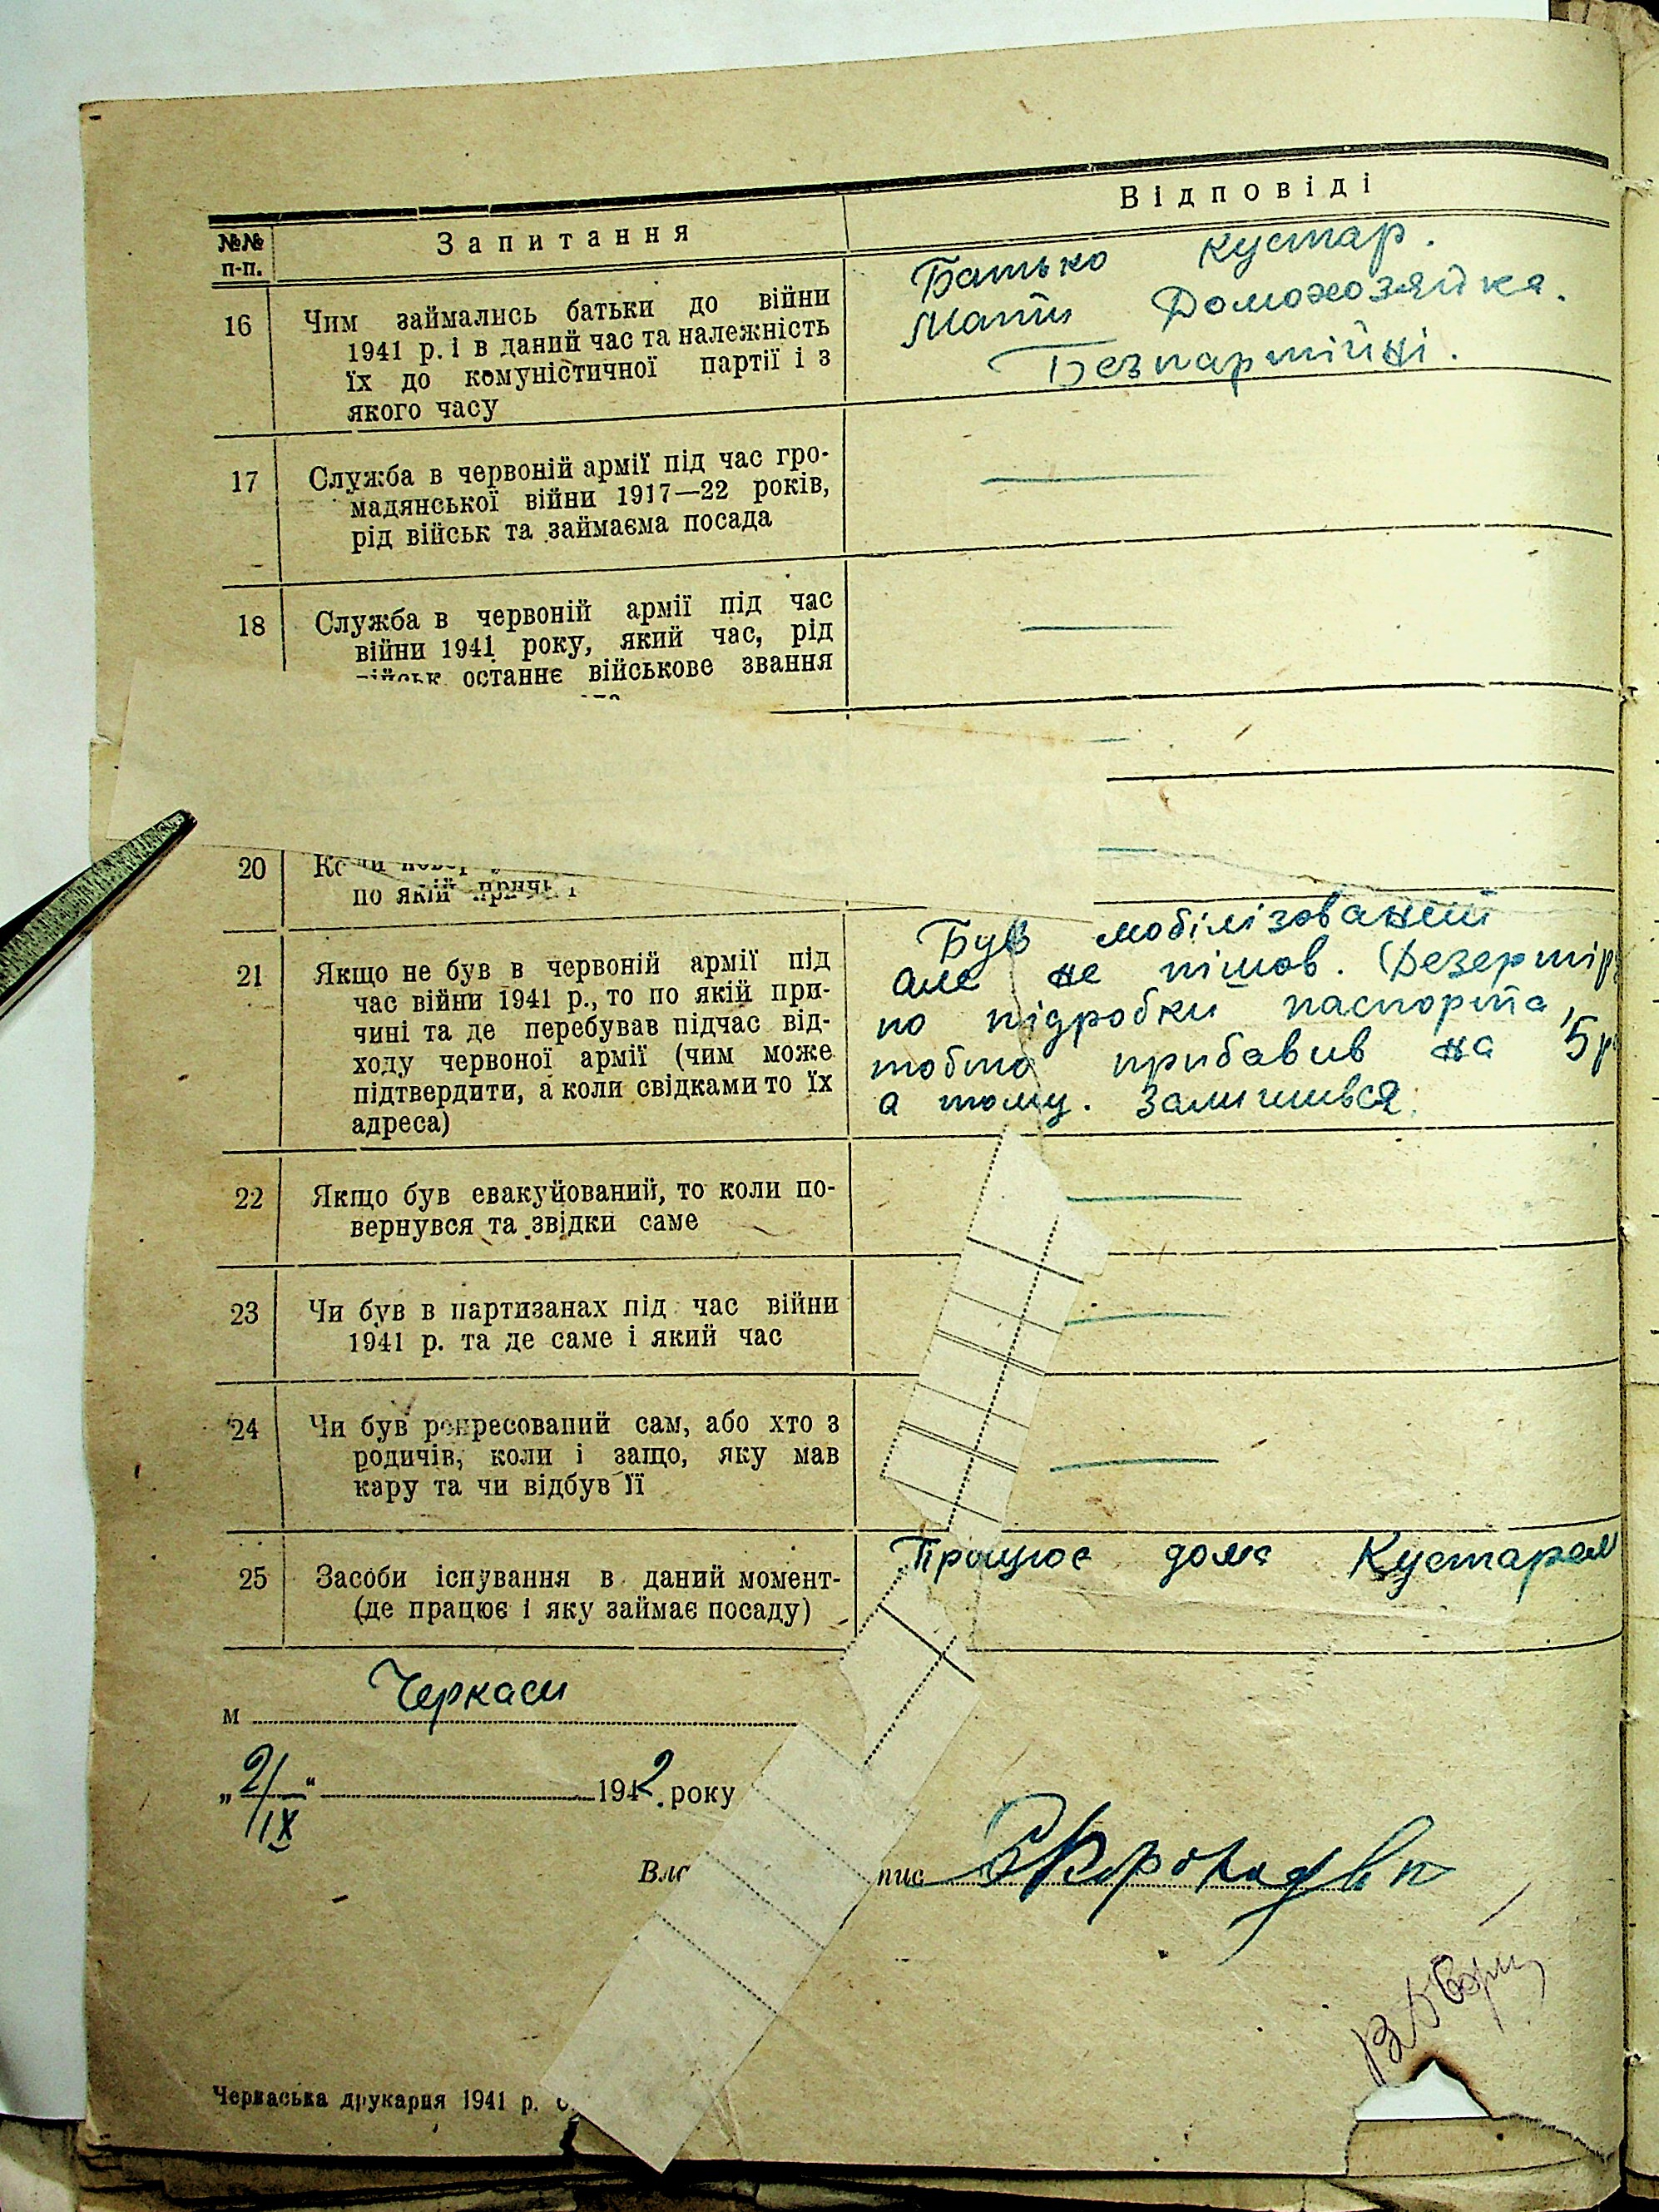 №№ п-п.
Запитання
Відповіді
16
Чим займались батьки до війни
1941 р. і в даний час та належність
їх до комуністичної партії і з
якого часу
Батько кустар.
Мати Домохозяйка.
Безпартійні.
17
Служба в червоній армії під час гро-
мадянської війни 1917—22 років,
рід військ та займаєма посада
18
Служба в червоній армії під час
війни 1941 року, який час, рід
військ останнє військове звання
20
Коли
по якій
21
Якщо не був в червоній армії під
час війни 1941 р., то по якій при-
чині та де перебував підчас від-
ходу червоної армії (чим може
підтвердити, а коли свідками то їх
адреса)
Був мобілізований
але не пішов. (Дезертір
по підробки паспорта,
тобто прибавив на 5р
а тому. Залишився.
22
Якщо був евакуйований, то коли по-
вернувся та звідки саме
23
Чи був в партизанах під час війни
1941 р. та де саме і який час
24
Чи був репресований сам, або хто з
родичів, коли і защо, яку мав
кару та чи відбув її
25
Засоби існування в даний момент-
(де працює і яку займає посаду)
Працює дома Кустарем
м Черкаси
„2/IX“ 1942 року
Вла
пис
Черкаська друкарня 1941 р.